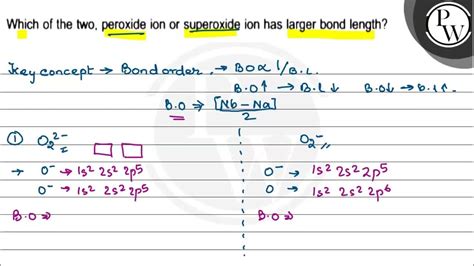 Which of the two, peroxide ion or superoxide ion has larger bond length?
PW
Key concept → Bond order. → BO ∝ 1/B.L.
B.O↑ → B.L↓ B.O↓ → b.l↑.
B.O ⇒ [Nb − Na]
2
① O₂²⁻ O₂⁻
→ O⁻ → 1s² 2s² 2p⁵ O⁻ → 1s² 2s² 2p⁵
O⁻ → 1s² 2s² 2p⁵ O → 1s² 2s² 2p⁶
B.O ⇒ B.O ⇒